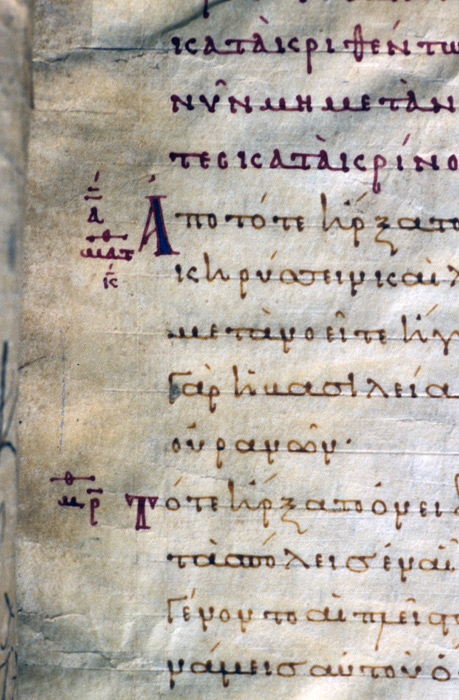 κατὰ κριθέντω
νῦν μὴ μετὰν
τες κατὰ κρίνο
Ἀπο τότε ἤρξατο
κηρύσσειν καὶ λ
μετανοεῖτε ἤγ
γὰρ ἡ βασιλεία
οὐρανῶν·
Τότε ἤρξατο ὀνει
τὰσ πόλεισ ἐν αἷ
γένοντο αἱ πλεῖσ
νάμεισ αὐτοῦ ὁ